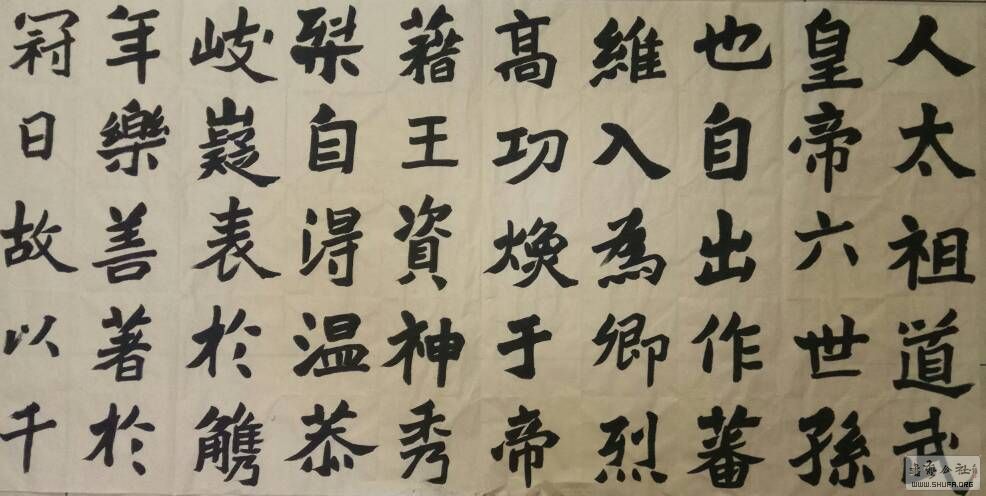 人太祖道武
皇帝六世孫
也自出作蕃
維入為卿烈
高功煥于帝
藉王資神秀
自淂温恭
岐嶷表於觿
年樂善著於
冠日故以千
WWW.SHUFA.ORG